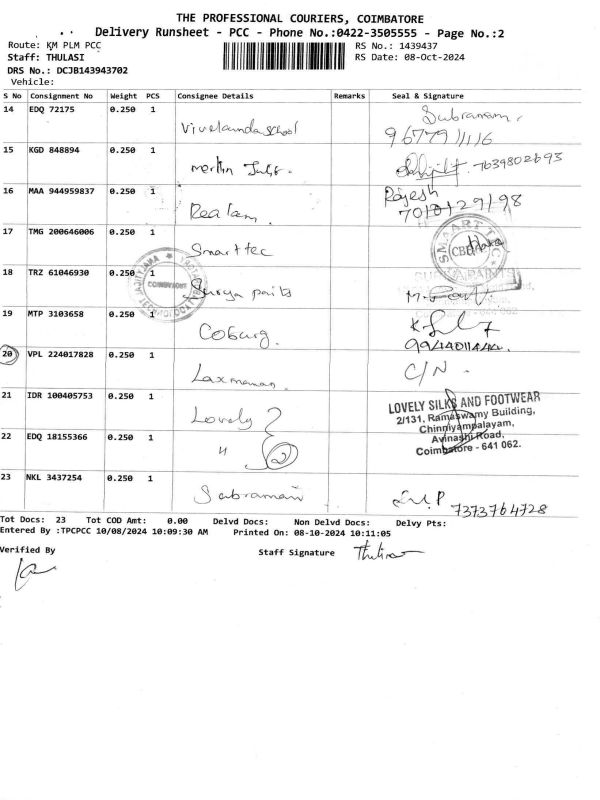 THE PROFESSIONAL COURIERS, COIMBATORE
Delivery Runsheet - PCC - Phone No.:0422-3505555 - Page No.:2
Route: KM PLM PCC
RS No.: 1439437
Staff: THULASI
RS Date: 08-Oct-2024
DRS No.: DCJB143943702
Vehicle:
S No Consignment No Weight PCS Consignee Details Remarks Seal & Signature
14 EDQ 72175 0.250 1 School Subramani
9677911116
15 KGD 848894 0.250 1 Merlin 7639802693
16 MAA 944959837 0.250 1 Realam Rajesh
17 TMG 200646006 0.250 1 Smarttec SMAART TEC
CBE
18 TRZ 61046930 0.250 1 Surya paints SURYA PAINTS
COIMBATORE
19 MTP 3103658 0.250 1 Coburg
20 VPL 224017828 0.250 1 Laxmanan C/N
21 IDR 100405753 0.250 1 Lovely
LOVELY SILKS AND FOOTWEAR
2/131, Ramaswamy Building,
Chinniyampalayam,
Avinashi Road,
Coimbatore - 641 062.
22 EDQ 18155366 0.250 1 " 2
23 NKL 3437254 0.250 1 Subramani 7373764728
Tot Docs: 23 Tot COD Amt: 0.00 Delvd Docs: Non Delvd Docs: Delvy Pts:
Entered By :TPCPCC 10/08/2024 10:09:30 AM Printed On: 08-10-2024 10:11:05
Verified By Staff Signature